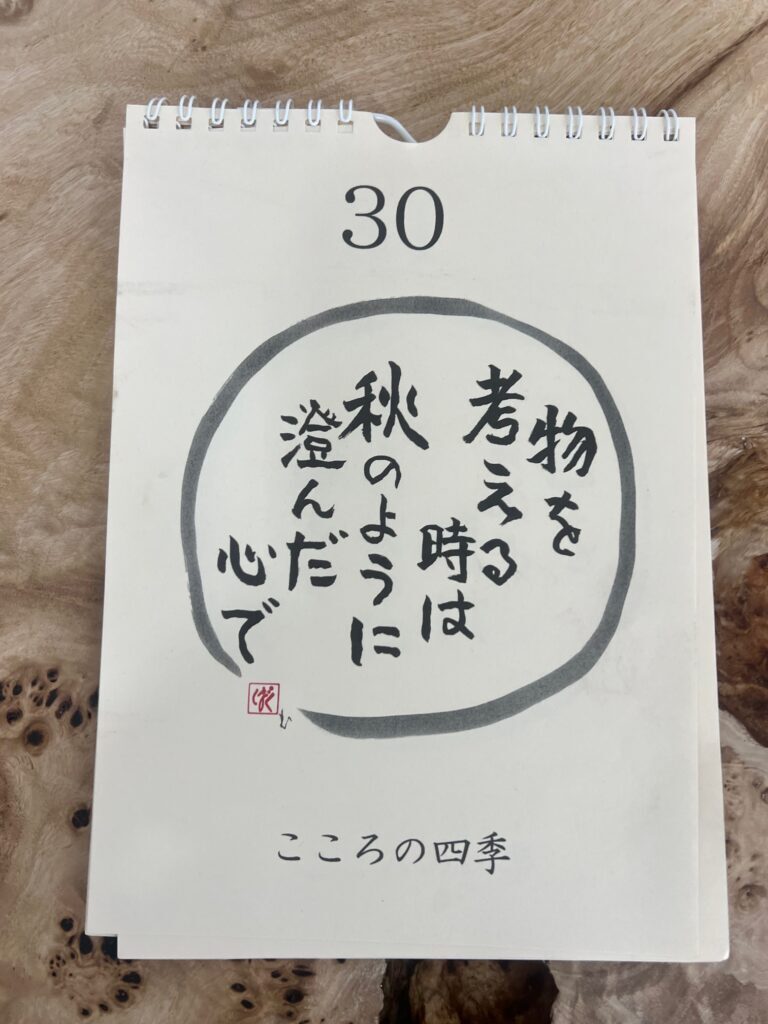 30
物を
考える
時は
秋のように
澄んだ
心で
こころの四季